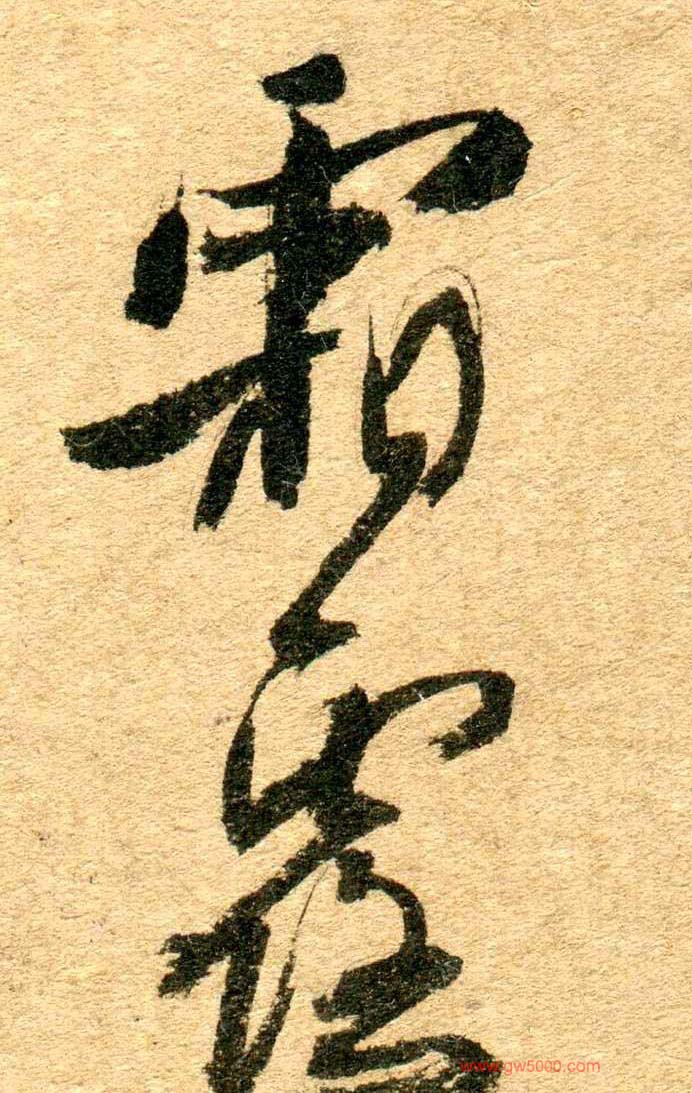 霜露
www.gw5000.com